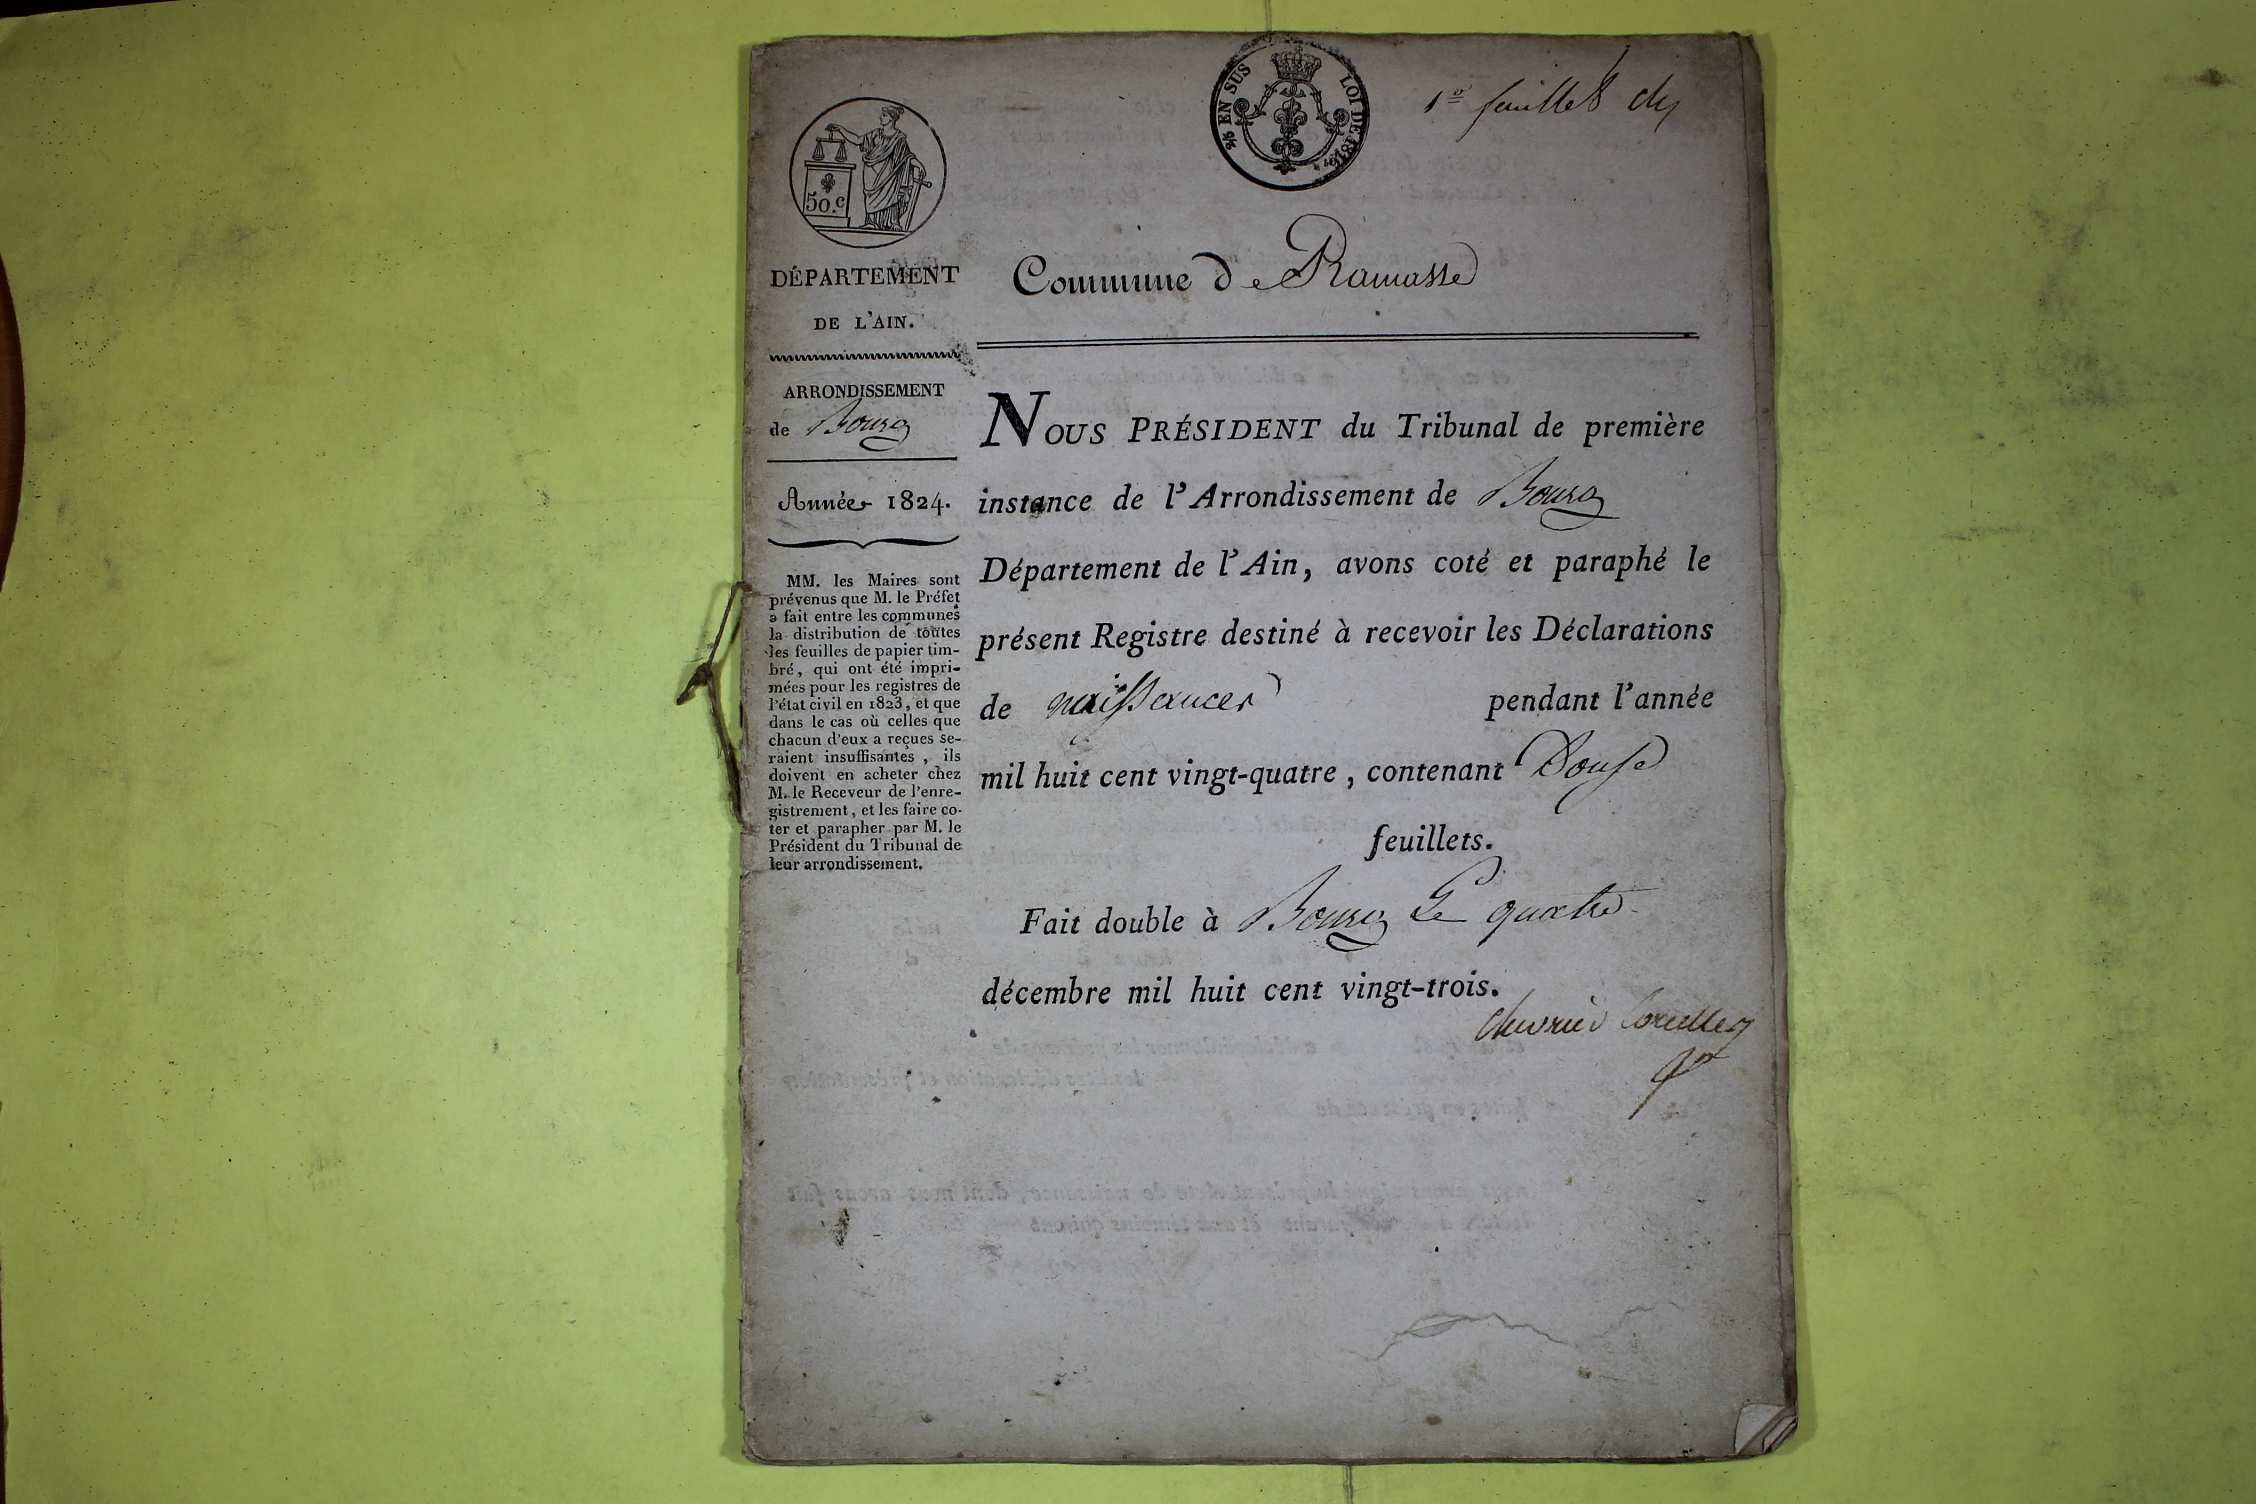 50.c
⅌ EN SUS LOI DE 1816
1er feuillet
DÉPARTEMENT
DE L'AIN.
ARRONDISSEMENT
de Bourg
Année 1824.
MM. les Maires sont
prévenus que M. le Préfet
a fait entre les communes
la distribution de toutes
les feuilles de papier tim-
bré, qui ont été impri-
mées pour les registres de
l'état civil en 1823, et que
dans le cas où celles que
chacun d'eux a reçues se-
raient insuffisantes, ils
doivent en acheter chez
M. le Receveur de l'enre-
gistrement, et les faire co-
ter et parapher par M. le
Président du Tribunal de
leur arrondissement.
Commune de Ramasse
NOUS PRÉSIDENT du Tribunal de première
instance de l'Arrondissement de Bourg
Département de l'Ain, avons coté et paraphé le
présent Registre destiné à recevoir les Déclarations
de naissances pendant l'année
mil huit cent vingt-quatre, contenant Douse
feuillets.
Fait double à Bourg Le quatre
décembre mil huit cent vingt-trois.